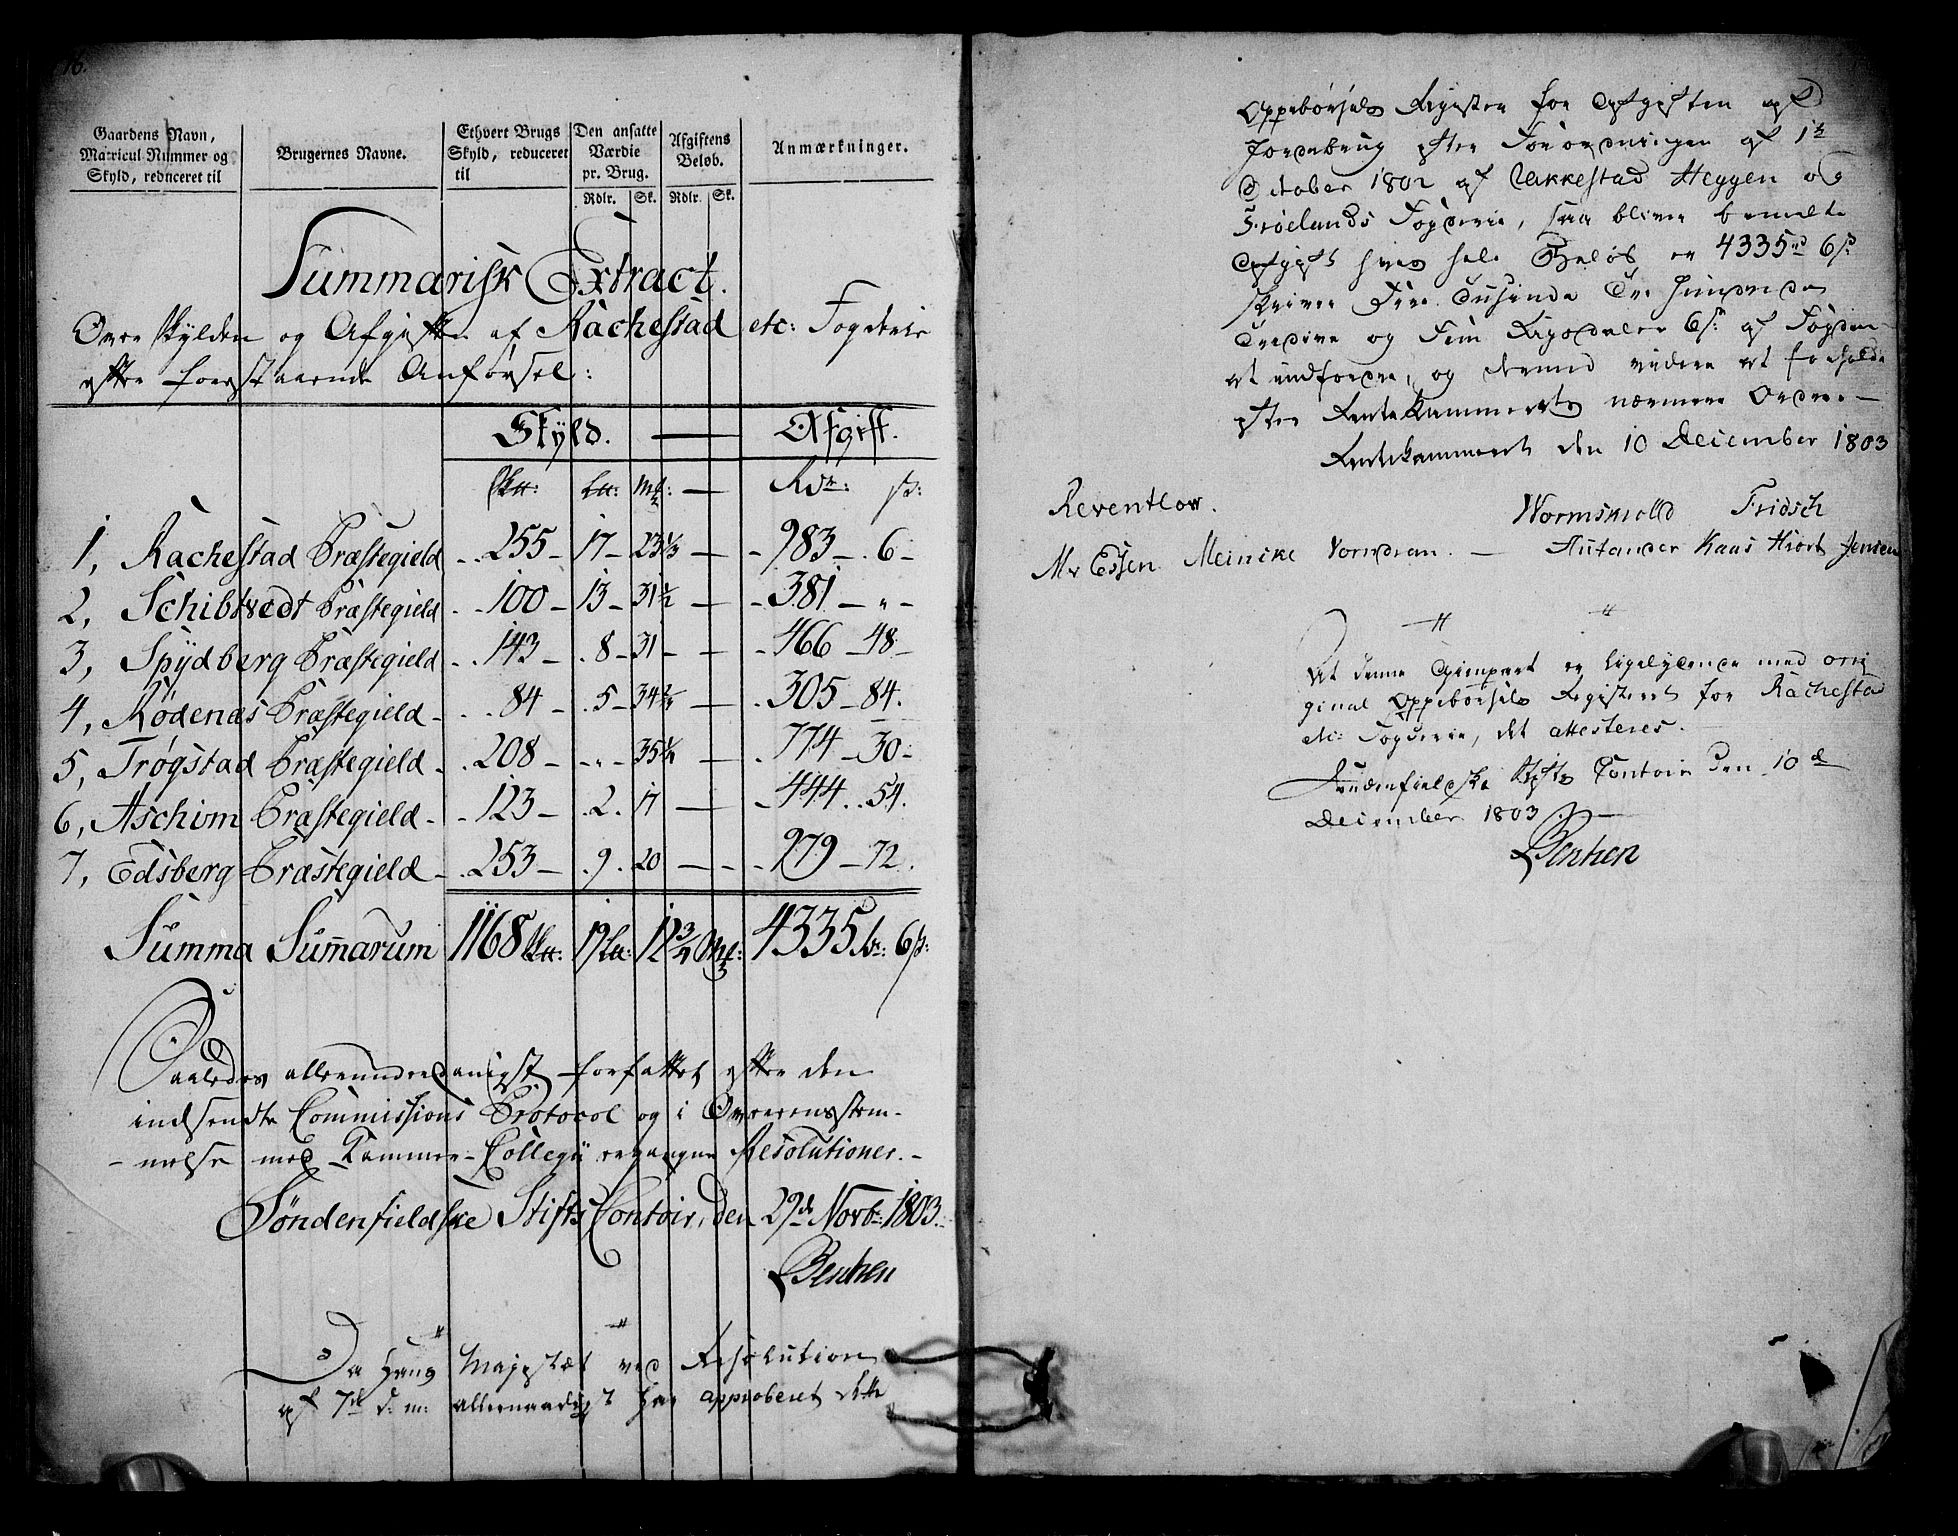 Gaardens Navn, Matricul-Nummer og Skyld, reduceret til
Brugernes Navne.
Ethvert Brugs Skyld, reduceret til
Den ansatte Værdie pr. Brug.
Afgiftens Beløb.
Anmærkninger.
Rdlr. Sk. Rdlr. Sk.
Summarisk Extract.
Over Skylden og Afgiften af Rachestad etc: Fogderie
efter foerstaaende Anførsel:
Skyld. — Afgift.
1, Rachestad Præstegield 255 17 23 1/3 983 6
2, Schibtvedt Præstegield 100 13 31 1/2 381 "
3, Spydberg Præstegield 143 8 31 466 48
4, Rødenæs Præstegield 84 5 34 305 84
5, Trøgstad Præstegield 208 " 35 774 30
6, Aschim Præstegield 123 2 17 444 54
7, Edsberg Præstegield 253 9 20 979 72
Summa Summarum 1168 19 12 3/4 4335 6
Saaledes allerunderdanigst forfattet efter den
indsendte Commissions Protocol og i Overeensstem-
-melse med Kammer-Collegii ergangne Resolutioner.-
Søndenfieldske Stifts Contoir, den 29de Novbr 1803.
Benzen
Da Hans Majestæt ved Resolution
af 7de d: m: allernaadigst har approberet dette
Oppebørsels Register for Afgiften af
Jordebrug efter Forordningen af 1te
October 1802 af Rakkestad Heggen og
Frølands Fogderie, saa bliver bemelte
Afgift hvis hele Beløb er 4335 rd 6 s:
skriver Fire Tusinde Tre Hundrede
Tredive og Fem Rigsdaler 6 s: af Fogden
at indfordre, og dermed videre at forholde
efter Rentekammerets nærmere Ordre.—
Rentekammeret den 10 December 1803
Reventlow.
Wormskiold Fridsch
Mv Essen Meinicke Vormdran. — Kaas Hiort Jensen
At denne Gienpart er ligelydende med ori
ginal Oppebørsels Registeret for Rachestad
etc: Fogderie, det attesteres.
Søndenfieldske Stifts Contoir den 10de
December 1803.
Benzen